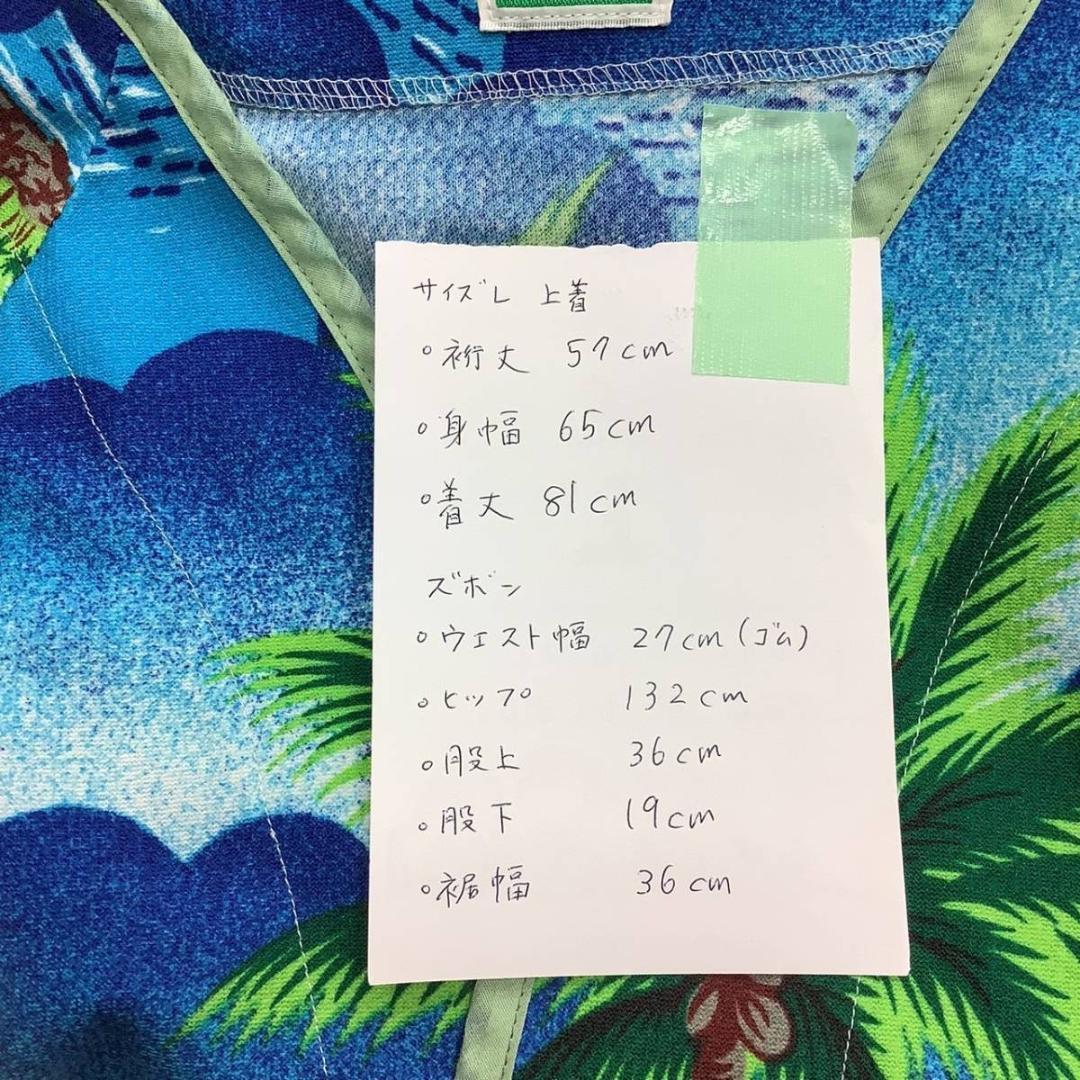 サイズL 上着
○裄丈 57cm
○身幅 65cm
○着丈 81cm
ズボン
○ウエスト幅 27cm(ゴム)
○ヒップ 132cm
○股上 36cm
○股下 19cm
○裾幅 36cm